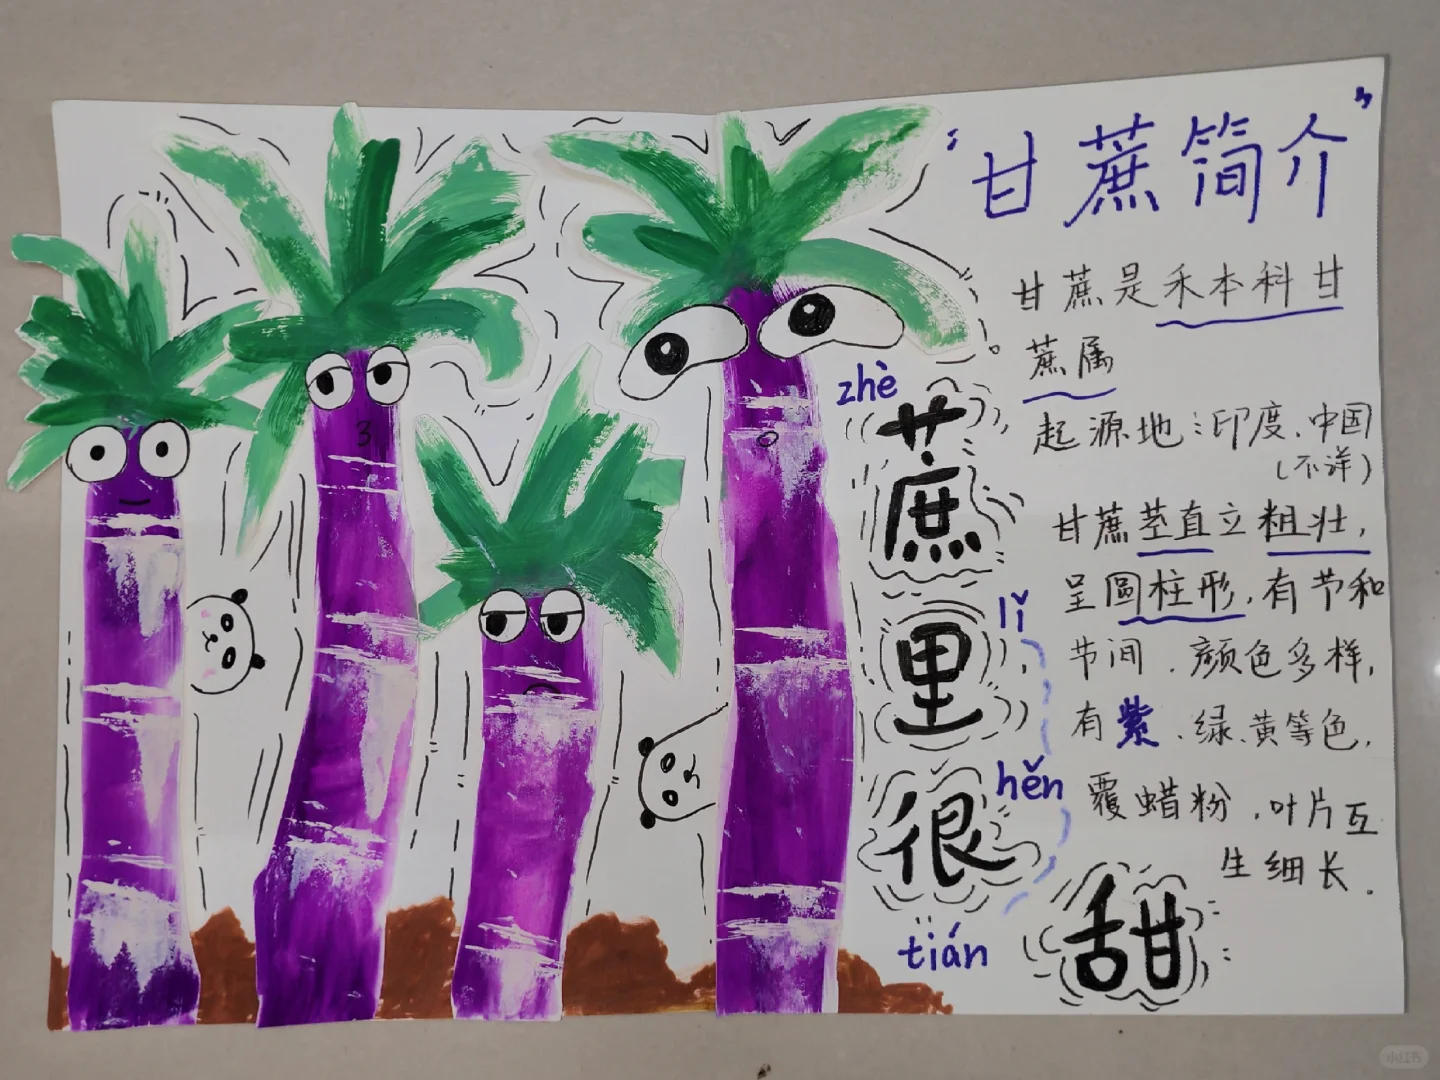 “甘蔗简介”
甘蔗是禾本科甘
蔗属
起源地:印度、中国
(不详)
甘蔗茎直立粗壮,
呈圆柱形,有节和
节间,颜色多样,
有紫、绿、黄等色,
覆蜡粉,叶片互
生细长.
zhè
蔗
lǐ
里
hěn
很
tián
甜
3
小红书